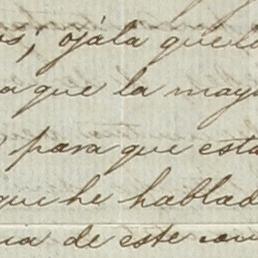 os; ojála que lo
a que la may
para que esta
que he hablad
na de este